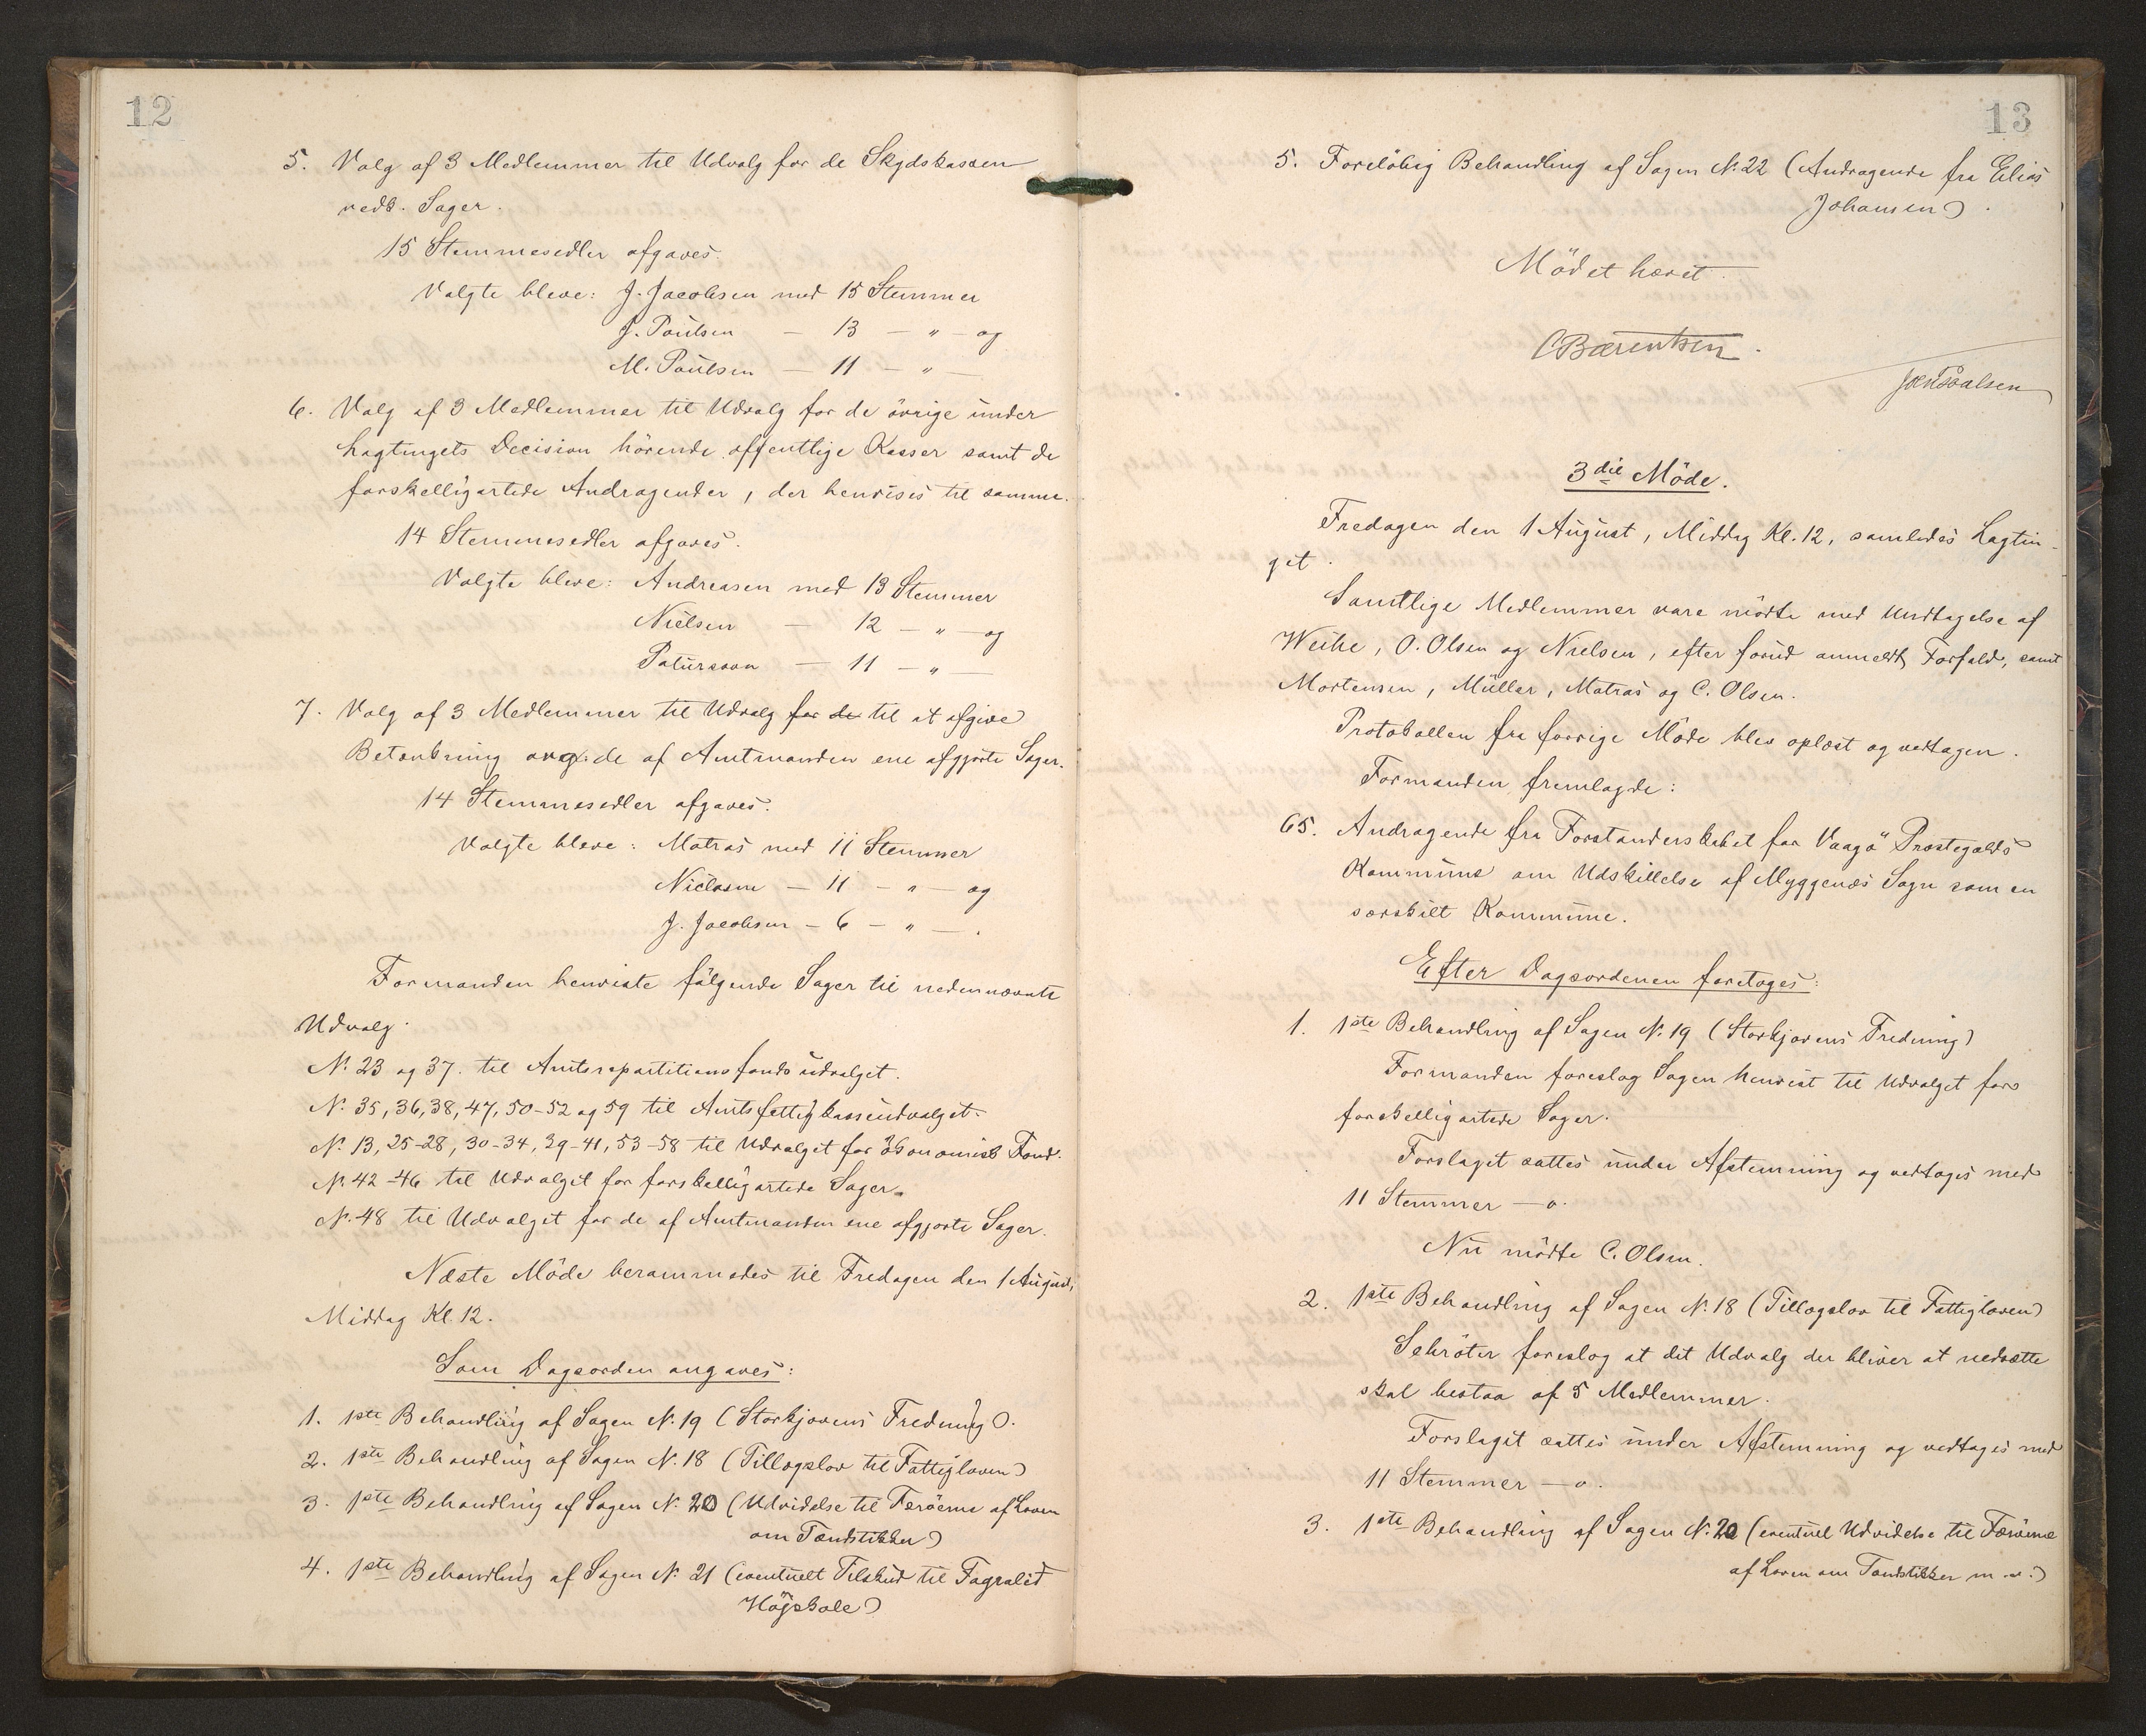 12
5. Valg af 3 Medlemmer til Udvalg for de Skydskassen
vedk. Sager.
15 Stemmesedler afgaves.
Valgte bleve: J. Jacobsen med 15 Stemmer
J. Poulsen — 13 — " — og
M. Poulsen — 11 — " —
6. Valg af 3 Medlemmer til Udvalg for de övrige under
Lagtingets Decision hörende offentlige Kasser samt de
forskelligartede Andragender, der henvises til samme.
14 Stemmesedler afgaves.
Valgte bleve: Andreasen med 13 Stemmer
Nielsen — 12 — " — og
Patursson — 11 — " —
7. Valg af 3 Medlemmer til Udvalg for de til at afgive
Betænkning ang. de af Amtmanden ene afgjorte Sager.
14 Stemmesedler afgaves.
Valgte bleve: Matras med 11 Stemmer
Niclasen — 11 — " — og
J. Jacobsen — 6 — " — .
Formanden henviste fölgende Sager til nedennævnte
Udvalg.
N. 23 og 37. til Amtsrepartitionsfondsudvalget.
N. 35, 36, 38, 47, 50-52 og 59 til Amtsfattigkasseudvalget.
N. 13, 25-28, 30-34, 39-41, 53-58 til Udvalget for ökonomisk Fond.
N. 42-46 til Udvalget for forskelligartede Sager.
N. 48 til Udvalget for de af Amtmanden ene afgjorte Sager.
Næste Möde berammedes til Fredagen den 1 August,
Middag Kl. 12.
Som Dagsorden angaves:
1. 1ste Behandling af Sagen N. 19 (Storkjovens Fredning).
2. 1ste Behandling af Sagen N. 18 (Tillægslov til Fattigloven)
3. 1ste Behandling af Sagen N. 20 (Udvidelse til Færöerne af Loven
om Tændstikker)
4. 1ste Behandling af Sagen N. 21 (eventuelt Tilskud til Fagralid
Höjskole)
13
5. Forelöbig Behandling af Sagen N. 22 (Andragende fra Elias
Johansen).
Mödet hævet.
CBærentsen.
JoenPoulsen
3die Möde.
Fredagen den 1 August, Middag Kl. 12, samledes Lagtin-
get.
Samtlige Medlemmer vare mödte med Undtagelse af
Weihe, O. Olsen og Nielsen, efter forud anmeldt Forfald, samt
Mortensen, Müller, Matras og C. Olsen.
Protokollen fra forrige Möde blev oplæst og vedtagen.
Formanden fremlagde:
65. Andragende fra Forstanderskabet for Vaagö Præstegælds
Kommune om Udskillelse af Myggenæs Sogn som en
særskilt Kommune.
Efter Dagsordenen foretoges:
1. 1ste Behandling af Sagen N. 19 (Storkjovens Fredning)
Formanden foreslog Sagen henvist til Udvalget for
forskelligartede Sager.
Forslaget sattes under Afstemning og vedtoges med
11 Stemmer — o.
Nu mödte C. Olsen.
2. 1ste Behandling af Sagen N. 18 (Tillægslov til Fattigloven)
Schröter foreslog at det Udvalg der bliver at nedsætte
skal bestaa af 5 Medlemmer.
Forslaget sattes under Afstemning og vedtoges med
11 Stemmer — o.
3. 1ste Behandling af Sagen N. 20 (eventuel Udvidelse til Færöerne
af Loven om Tændstikker m. v.)